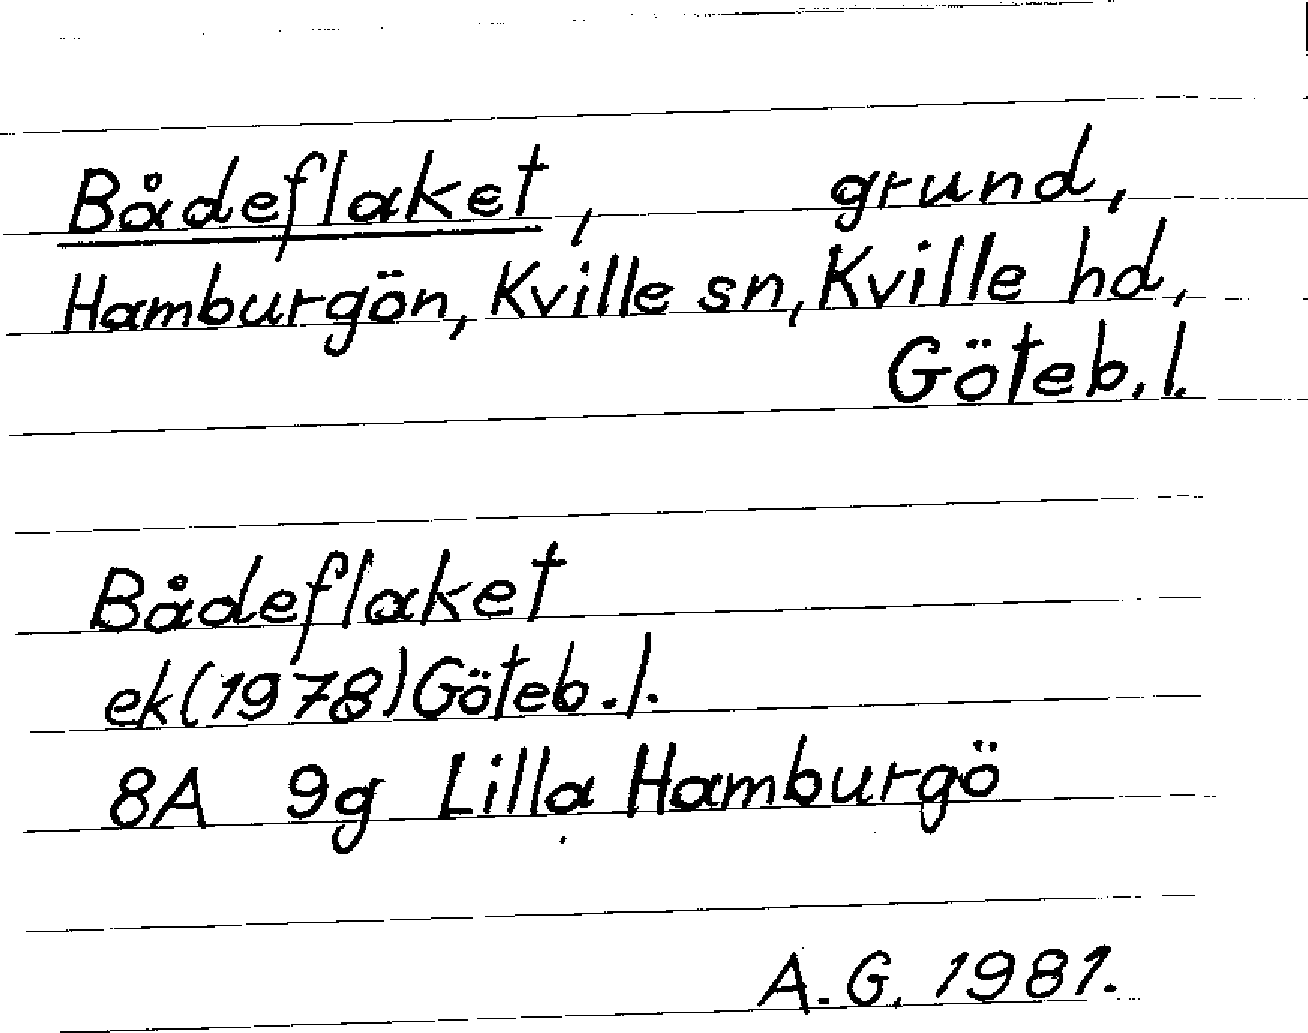 Bådeflaket, grund,
Hamburgön, Kville sn, Kville hd,
Göteb. l.
Bådeflaket
ek (1978) Göteb. l.
8A 9g Lilla Hamburgö
A. G. 1981.